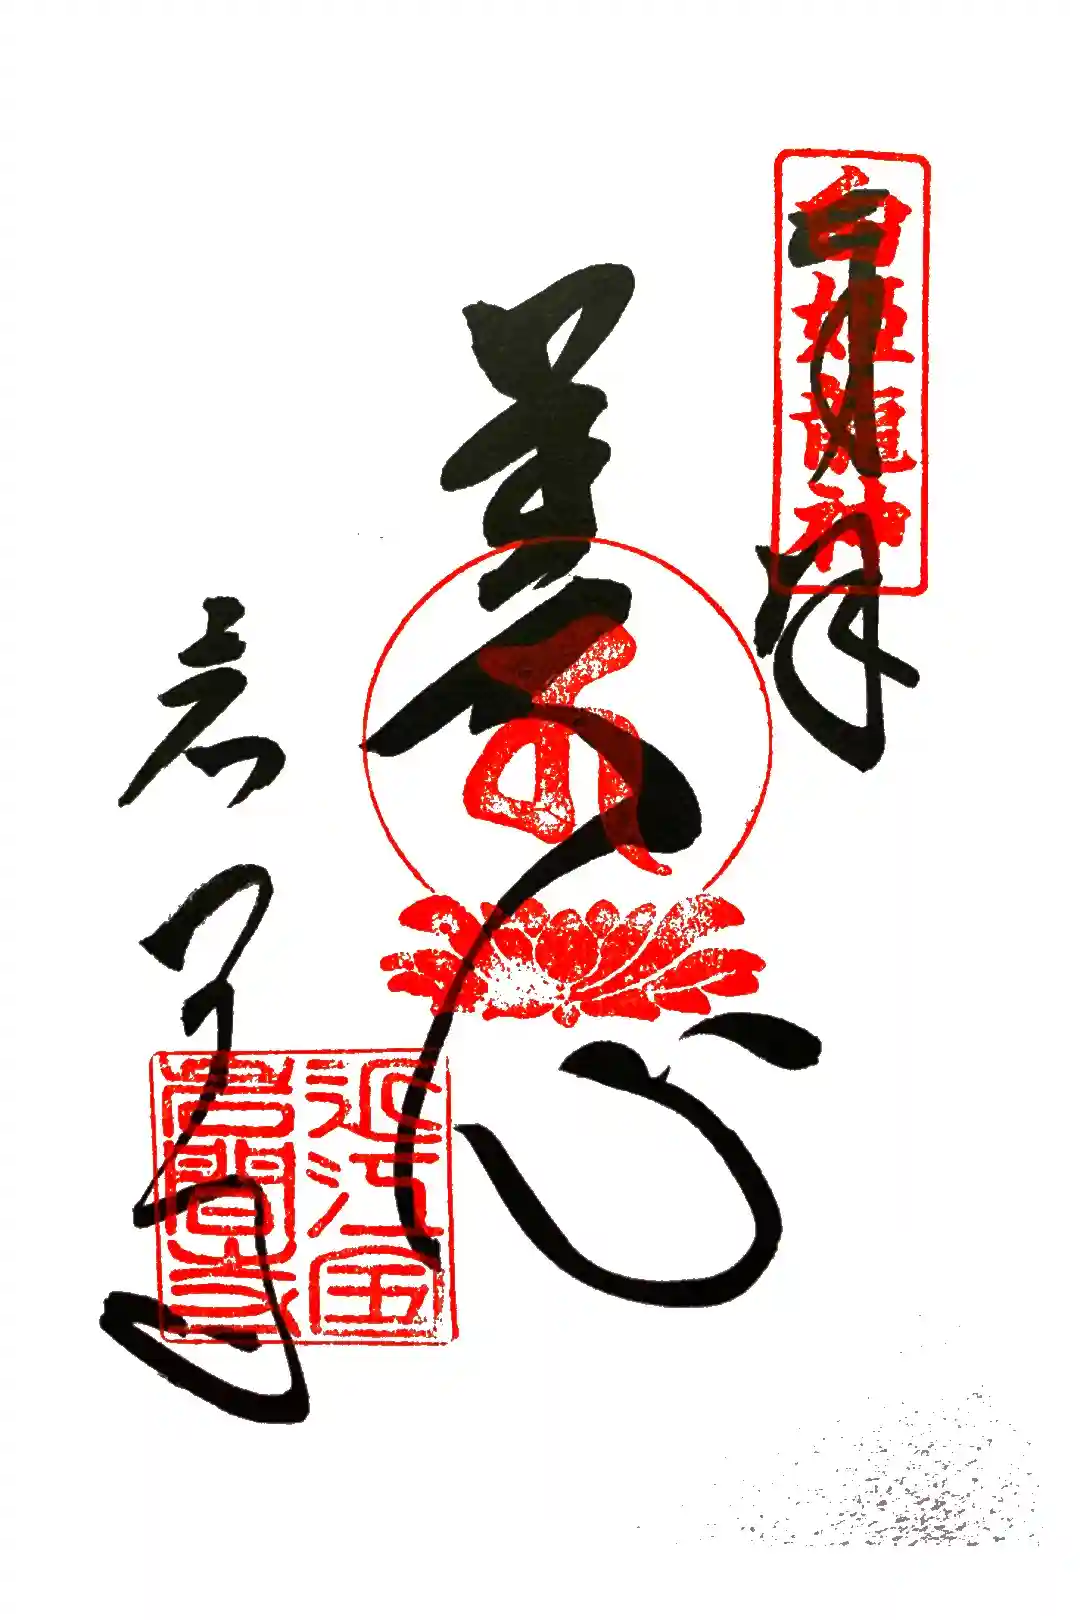 白姫龍神
奉拝
美心
近江国
岩間寺
岩間寺